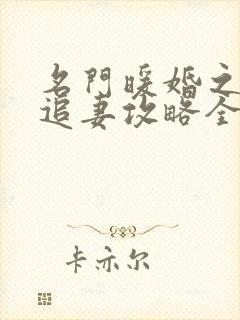 名門暖婚之
追妻攻略全
卡亦尔